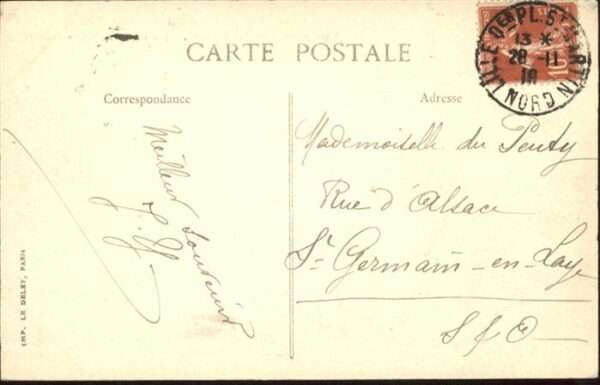 CARTE POSTALE
Correspondance
Adresse
LILLE Dᴱᴿ PL. Sᵀ MARTIN
13 *
28 - 11
18
NORD
10
Meilleur Souvenir
Mademoiselle du
Rue d'Alsace
St Germain-en-Laye
S & O
IMP. LE DELEY, PARIS